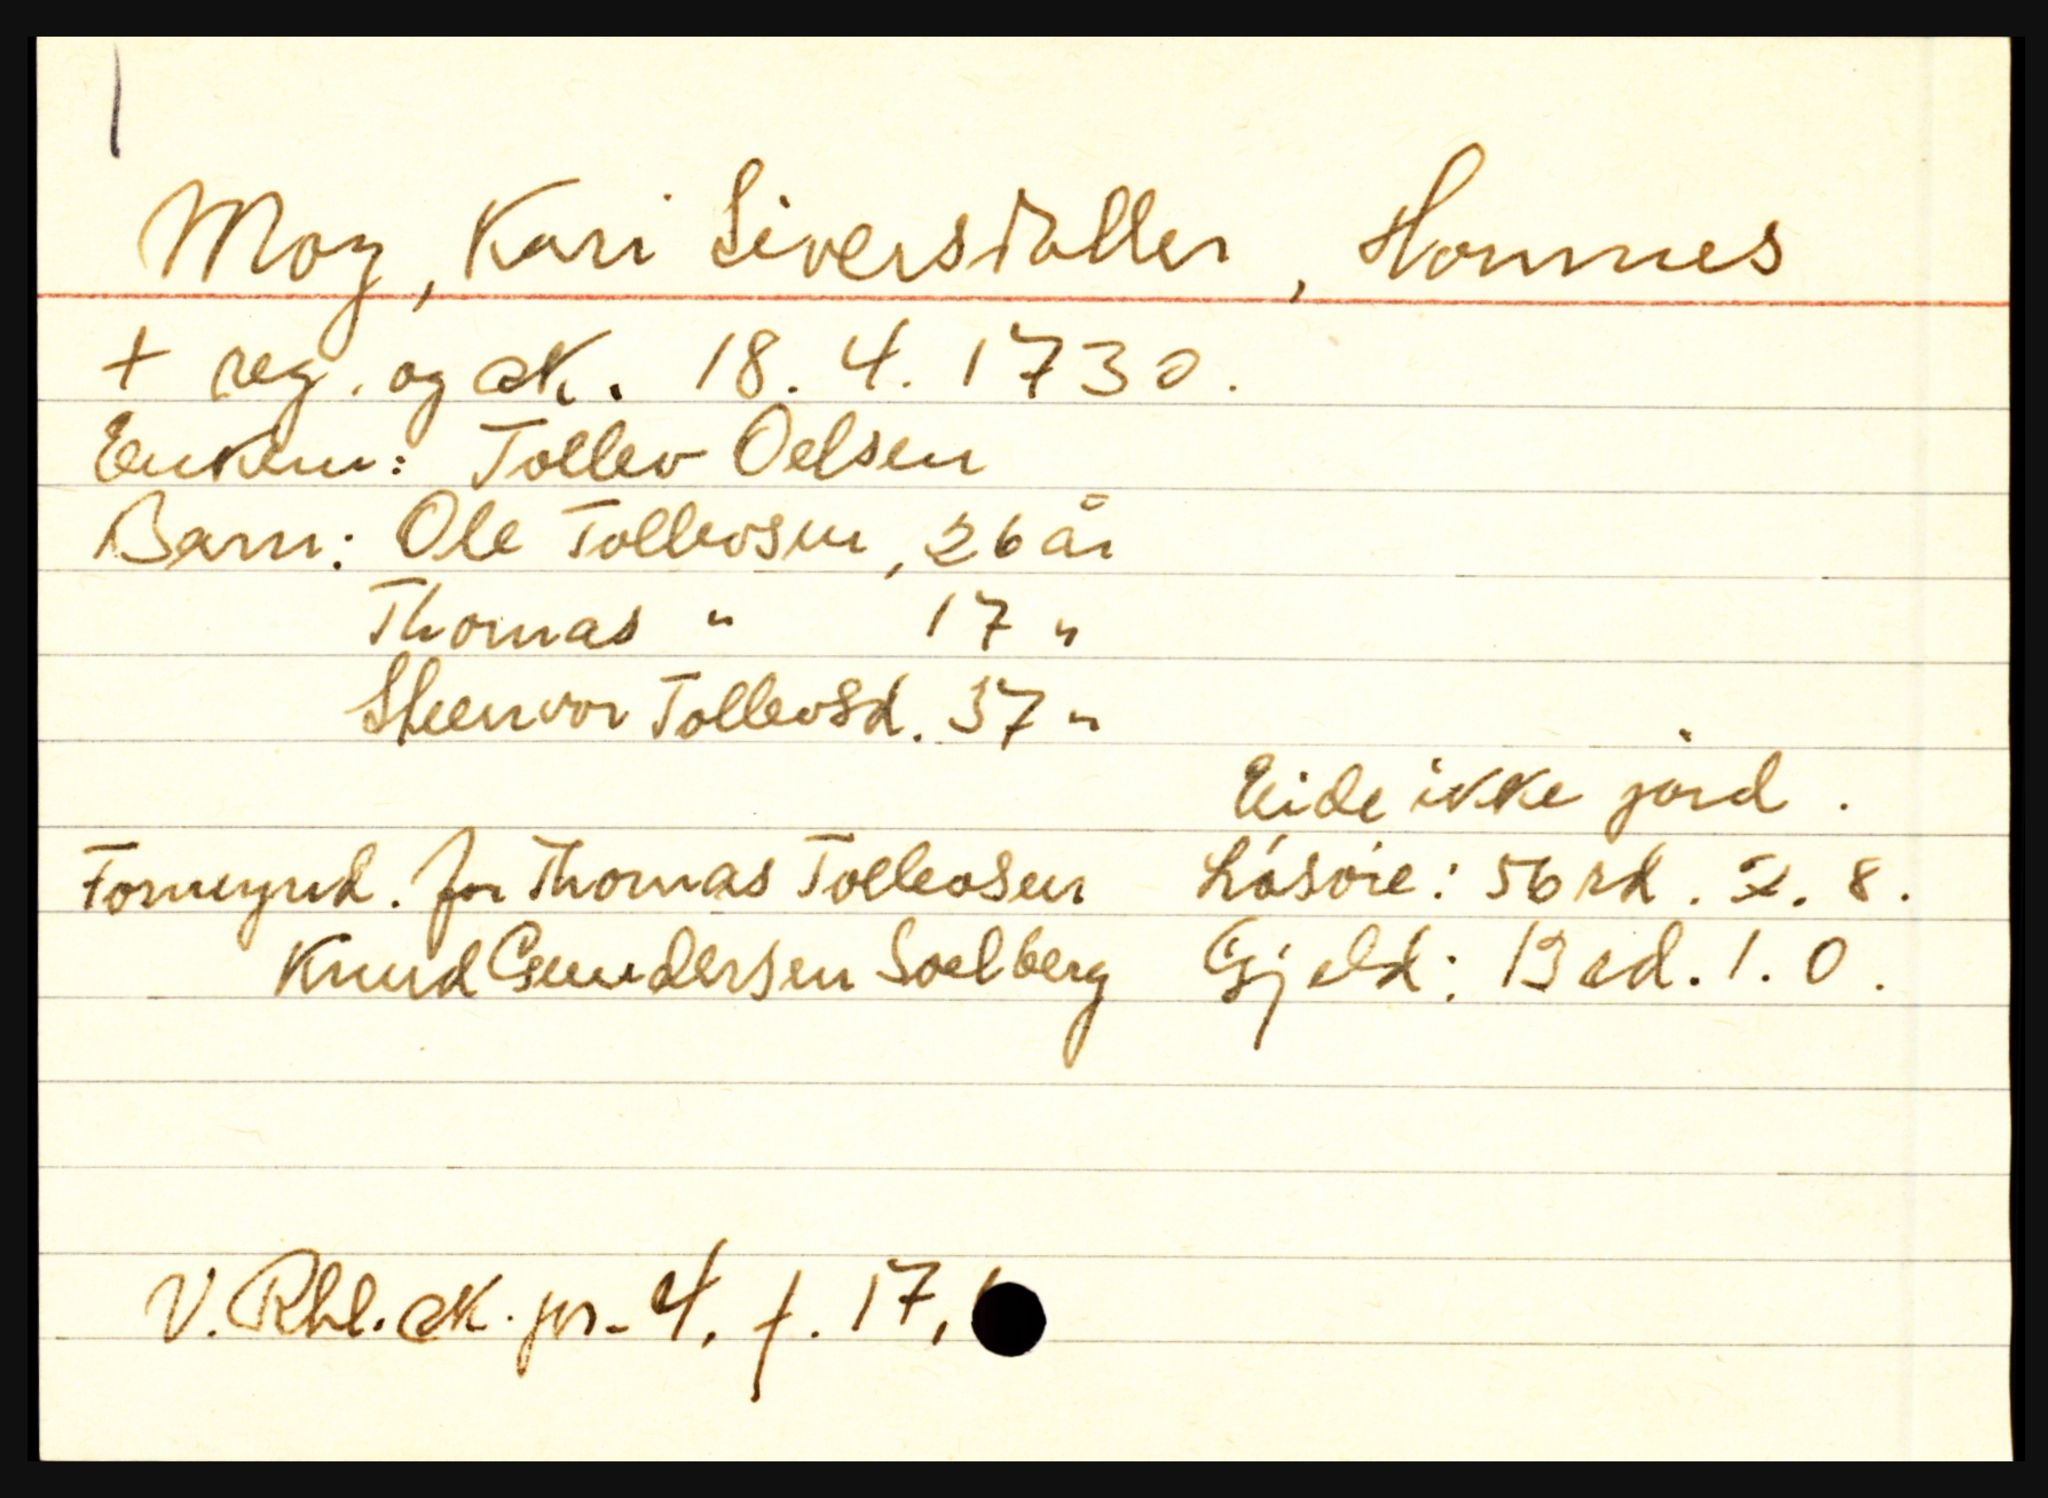 Moy, Kari Siversdatter, Hommes
+ reg. og sk. 18. 4. 1730.
Enkem: Tollev Oelsen
Barn: Ole Tollevsen, 26 år
Thomas " 17 "
Steenvor Tollevsd. 37 "
Eide ikke jord.
Formynd. for Thomas Tollevsen Løsøre: 56 rd. 2. 8.
Knud Gundersen Soelberg Gjeld: 13 rd. 1. 0.
V. Rbl. sk. pr. 4. f. 17,